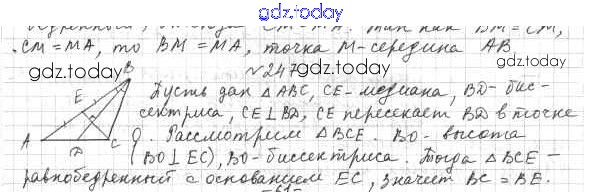 gdz.today
CM = MA. Так как BM = CM,
CM = MA, то BM = MA, точка M - середина AB.
gdz.today №247 gdz.today
B
E
A
C
D
Пусть дан △ABC, CE - медиана, BD - бис-
сектриса, CE⊥BD, CE пересекает BD в точке
O. Рассмотрим △BCE. BO - высота
(BO⊥EC), BO - биссектриса. Тогда △BCE -
равнобедренный с основанием EC, значит BC = BE.
gdz.today gdz.today